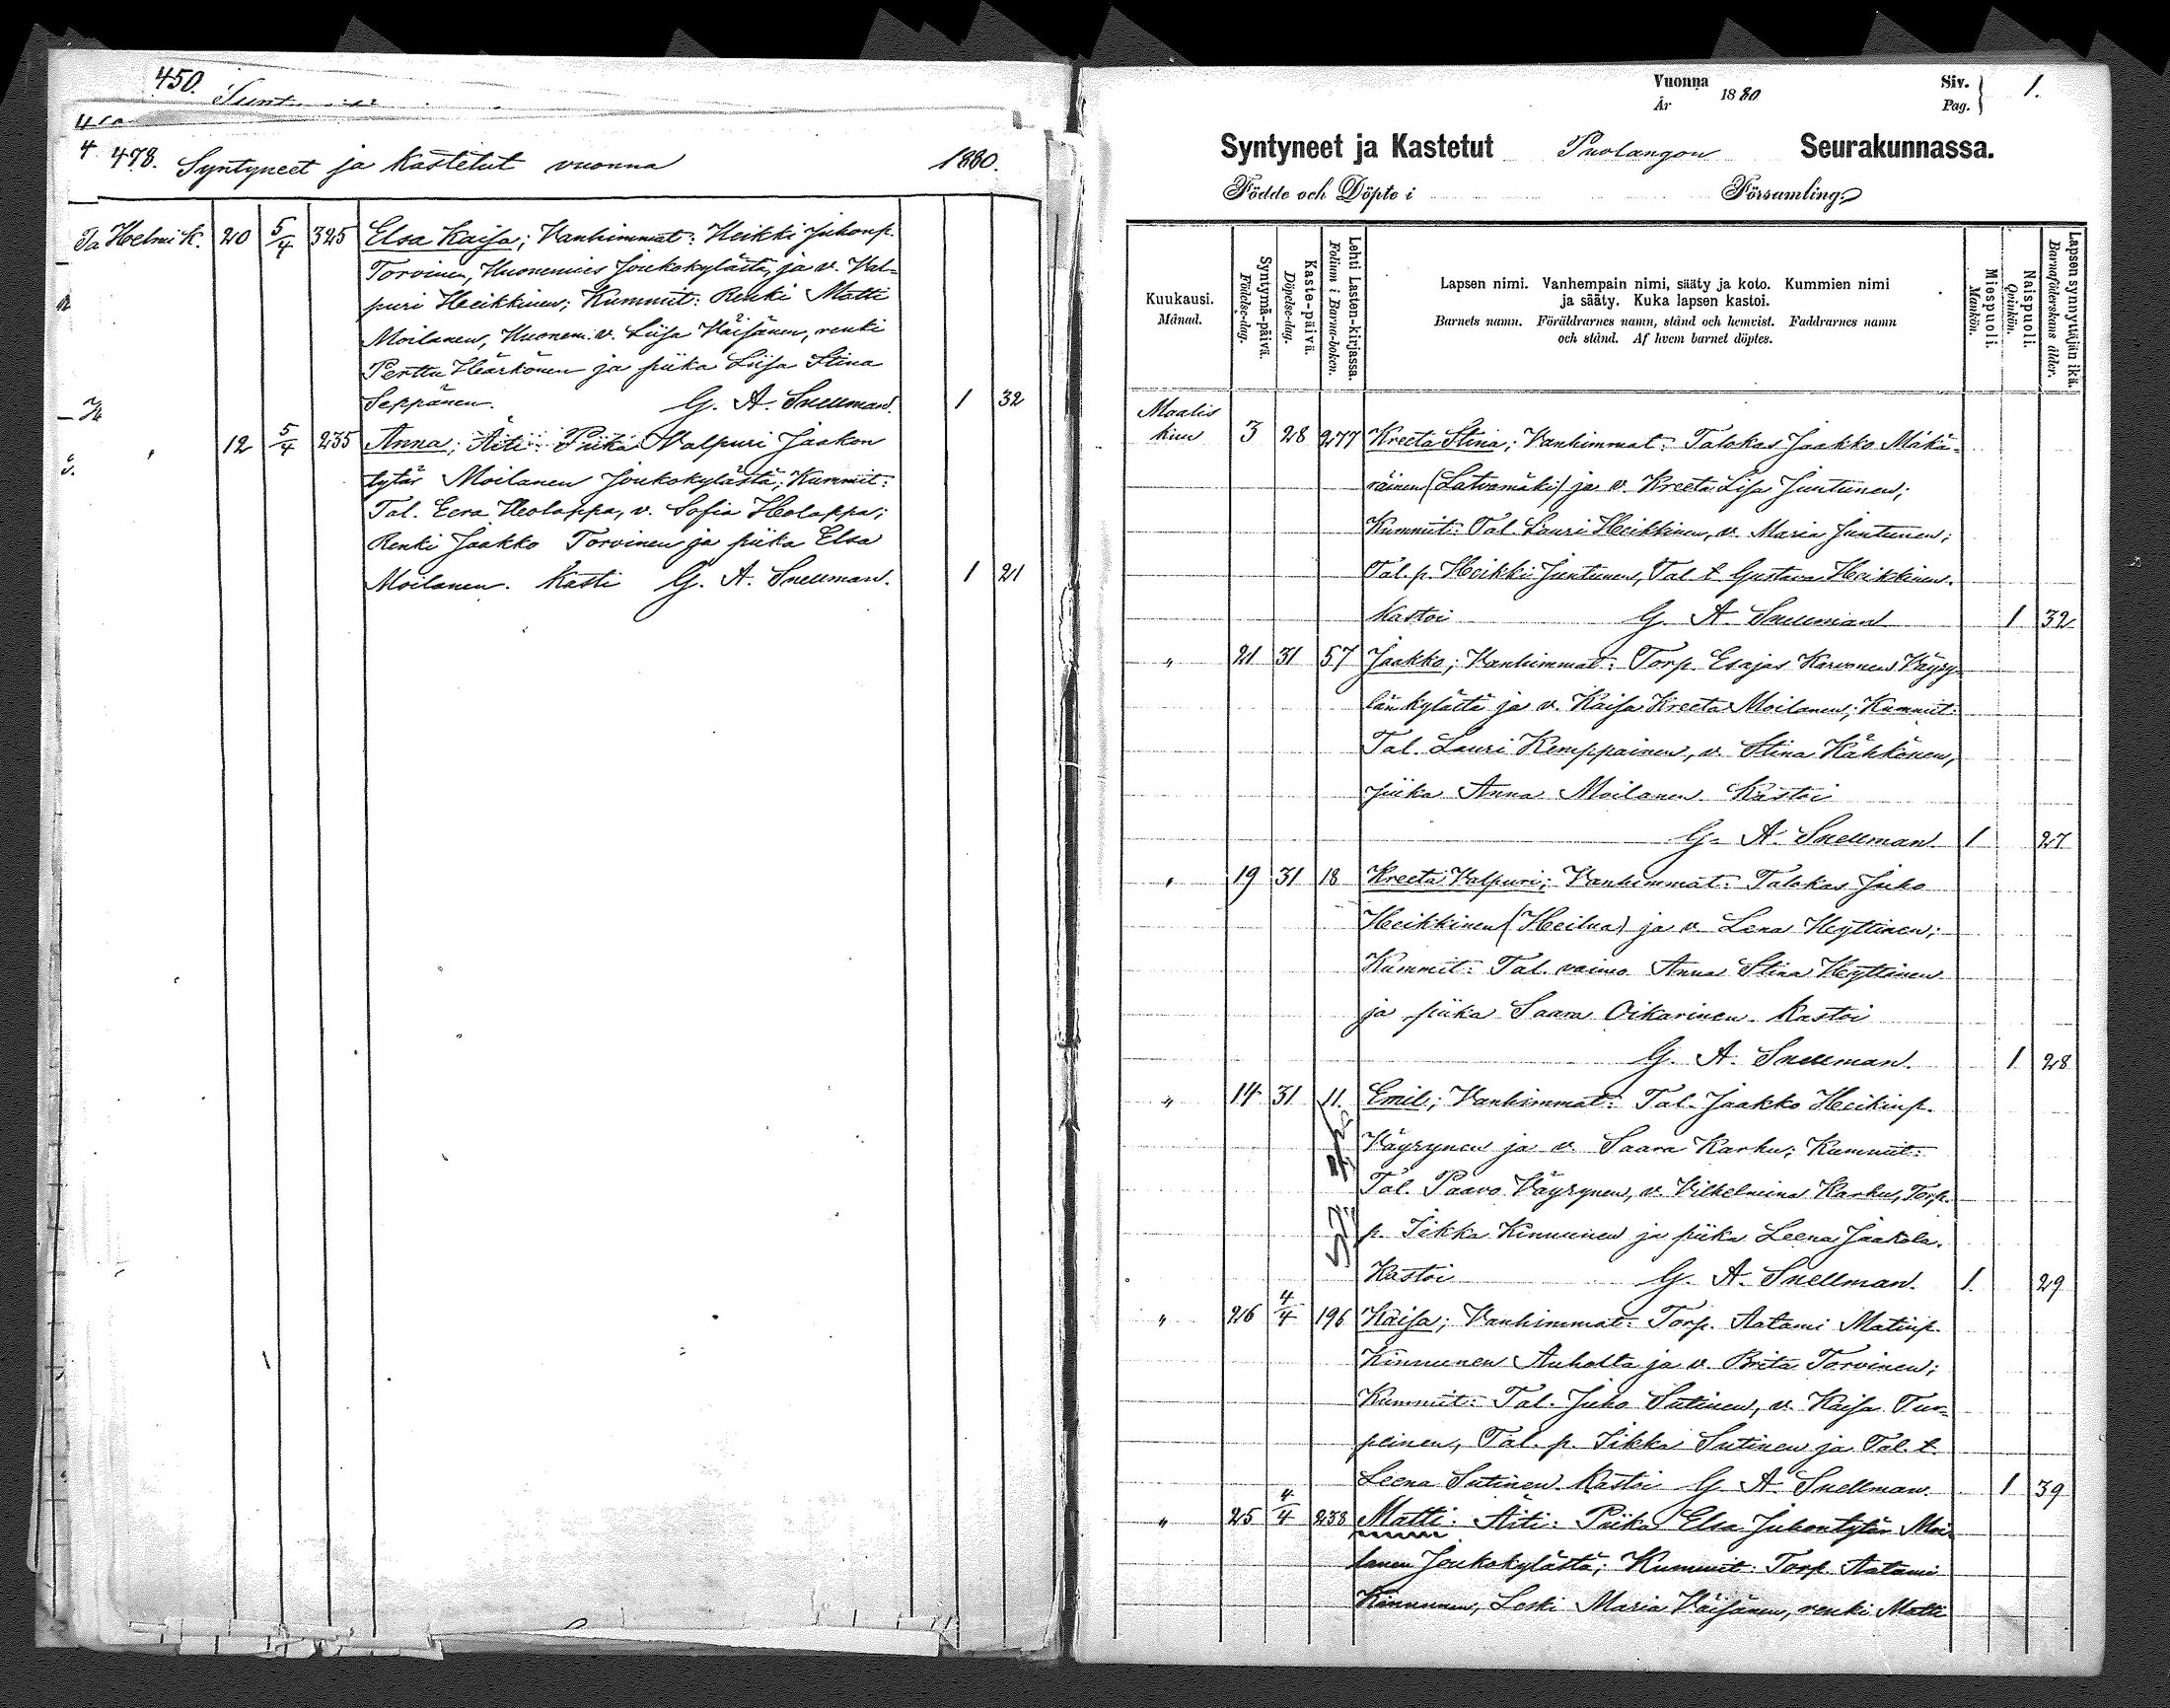 450.
478. Syntyneet ja kastetut vuonna 1880.
Ta Helmi k. 20 5/4 325 Elsa Kaisa; Vanhimmat: Heikki Juhonp.
Torvinen, Huonemies Joukokylästä, ja v. Val-
puri Heikkinen; Kummit: Renki Matti
Moilanen, Huonem. v. Liisa Väisänen, renki
Perttu Härkönen ja piika Liisa Stina
Seppänen. G. A. Snellman. 1 32
" 12 5/4 235 Anna; Äiti: Piika Valpuri Jaakon
tytär Moilanen Joukokylästä; Kummit:
Tal. Eera Holappa, v. Sofia Holappa;
Renki Jaakko Torvinen ja piika Elsa
Moilanen. Kasti G. A. Snellman. 1 21
Vuonna Siv.
År 1880 Pag. 1.
Syntyneet ja Kastetut Puolangon Seurakunnassa.
Födde och Döpte i Församling.
Kuukausi.
Månad.
Syntymä-päivä.
Födelse-dag.
Kaste-päivä.
Döpelse-dag.
Lehti Lasten-kirjassa.
Folium i Barna-boken.
Lapsen nimi. Vanhempain nimi, sääty ja koto. Kummien nimi
ja sääty. Kuka lapsen kastoi.
Barnets namn. Föräldrarnes namn, stånd och hemvist. Faddrarnes namn
och stånd. Af hvem barnet döptes.
Miespuoli.
Mankön.
Naispuoli.
Qvinkön.
Lapsen synnyttäjän ikä.
Barnaföderskans ålder.
Maalis
kuu 3 28 277 Kreeta Stina; Vanhimmat: Talokas Jaakko Mäkä-
räinen (Latvamäki) ja v. Kreeta Lisa Juntunen;
Kummit: Tal. Lauri Heikkinen, v. Maria Juntunen;
Tal. p. Heikki Juntunen, Tal t. Gustava Heikkinen.
Kastoi G. A. Snellman 1 32
" 21 31 57 Jaakko; Vanhimmat: Torp. Esajas Karvonen Väyry-
länkylältä ja v. Kaisa Kreeta Moilanen; Kummit:
Tal. Lauri Kemppainen, v. Stina Kähkönen,
piika Anna Moilanen. Kastoi
G. A. Snellman. 1 27
" 19 31 18 Kreeta Valpuri; Vanhimmat: Talokas Juho
Heikkinen (Heilua) ja v. Lena Heyttinen;
Kummit: Tal. vaimo Anna Stina Heyttinen
ja piika Saara Oikarinen. Kastoi
G. A. Snellman. 1 28
" 14 31 11. Emil; Vanhimmat: Tal. Jaakko Heikinp.
Väyrynen ja v. Saara Karhu; Kummit:
Tal. Paavo Väyrynen, v. Vilhelmina Karhu, Torp.
p. Iikka Kinnunen ja piika Leena Jaakola.
Kastoi G. A. Snellman. 1. 29
" 26 4/4 196 Kaisa; Vanhimmat: Torp. Aatami Matinp.
Kinnunen Auholta ja v. Brita Torvinen;
Kummit: Tal. Juho Sutinen, v. Kaisa Tur-
peinen, Tal. p. Iikka Sutinen ja Tal. t.
Leena Sutinen. Kastoi G. A. Snellman. 1 39
" 25 4/4 238 Matti: Äiti: Piika Elsa Juhontytär Moi
lanen Joukokylästä; Kummit: Torp. Aatami
Kinnunen, Leski Maria Väisänen, renki Matti